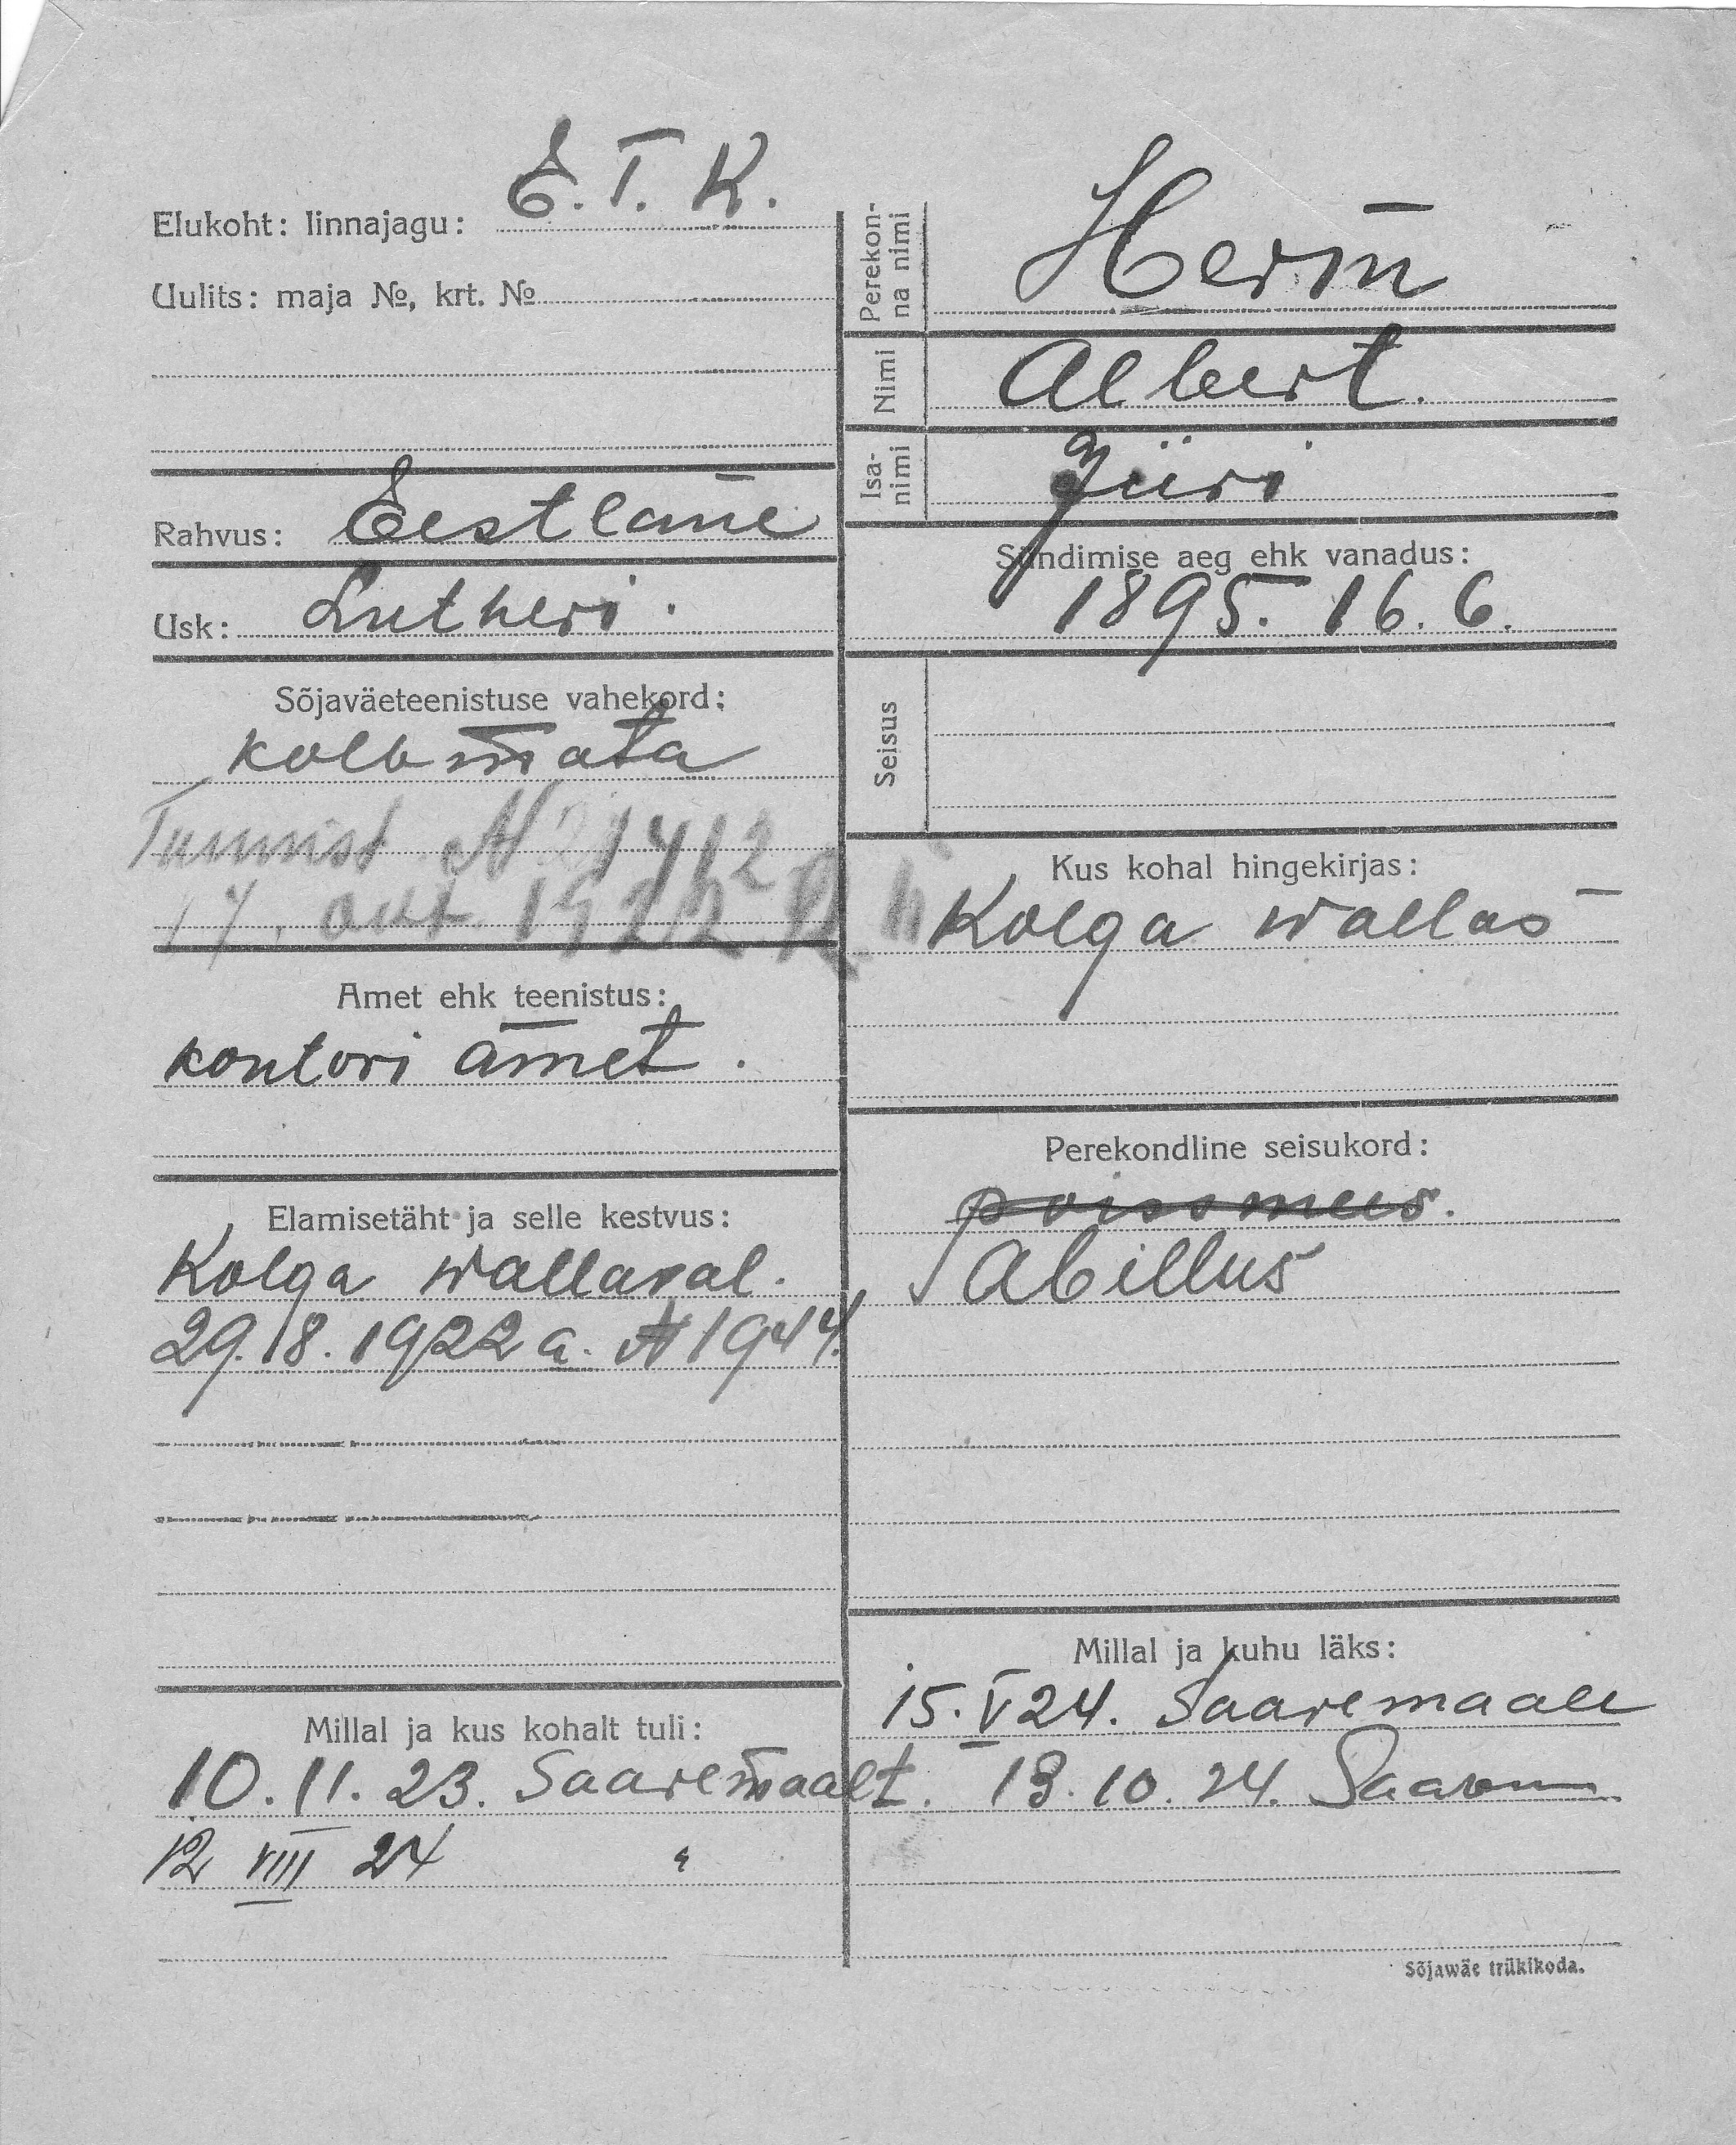 Elukoht: linnajagu: E. T. K.
Uulits: maja №, krt. №
Rahvus: Eestlane
Usk: Lutheri.
Sõjaväeteenistuse vahekord:
kolbmata
Tunnist № 1412
17. okt. 1922
Amet ehk teenistus:
kontori amet.
Elamisetäht ja selle kestvus:
Kolga wallaval.
29.8.1922 a. № 1944.
Millal ja kus kohalt tuli:
10.11.23. Saaremaalt.
12 VIII 24 "
Perekonna nimi Herm
Nimi Albert.
Isanimi Jüri
Sündimise aeg ehk vanadus:
1895. 16.6.
Seisus
Kus kohal hingekirjas:
Kolga wallas
Perekondline seisukord:
poissmees.
Abillus
Millal ja kuhu läks:
15. V 24. Saaremaale
13.10.24. Saarem
Sõjawäe trükikoda.